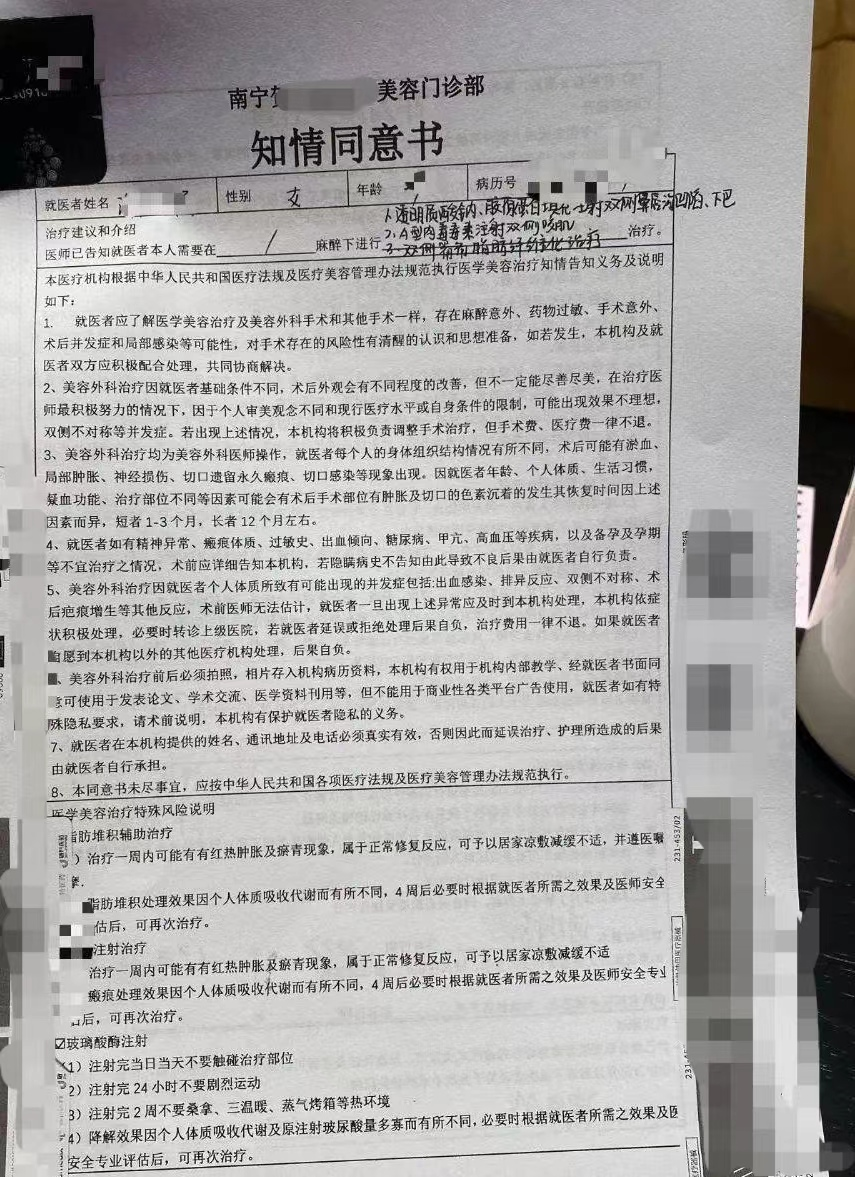 南宁 美容门诊部
知情同意书
就医者姓名 性别 女 年龄 病历号
治疗建议和介绍
1.透明质酸钠、胶原蛋白 注射双侧 凹陷、下巴
2.A型肉毒毒素注射双侧咬肌
医师已告知就医者本人需要在 / 麻醉下进行 3.双侧 脂肪 治疗 治疗。
本医疗机构根据中华人民共和国医疗法规及医疗美容管理办法规范执行医学美容治疗知情告知义务及说明
如下：
1. 就医者应了解医学美容治疗及美容外科手术和其他手术一样，存在麻醉意外、药物过敏、手术意外、
术后并发症和局部感染等可能性，对手术存在的风险性有清醒的认识和思想准备，如若发生，本机构及就
医者双方应积极配合处理，共同协商解决。
2、美容外科治疗因就医者基础条件不同，术后外观会有不同程度的改善，但不一定能尽善尽美，在治疗医
师最积极努力的情况下，因于个人审美观念不同和现行医疗水平或自身条件的限制，可能出现效果不理想，
双侧不对称等并发症。若出现上述情况，本机构将积极负责调整手术治疗，但手术费、医疗费一律不退。
3、美容外科治疗均为美容外科医师操作，就医者每个人的身体组织结构情况有所不同，术后可能有淤血、
局部肿胀、神经损伤、切口遗留永久瘢痕、切口感染等现象出现。因就医者年龄、个人体质、生活习惯，
凝血功能、治疗部位不同等因素可能会有术后手术部位有肿胀及切口的色素沉着的发生其恢复时间因上述
因素而异，短者 1-3 个月，长者 12 个月左右。
4、就医者如有精神异常、瘢痕体质、过敏史、出血倾向、糖尿病、甲亢、高血压等疾病，以及备孕及孕期
等不宜治疗之情况，术前应详细告知本机构，若隐瞒病史不告知由此导致不良后果由就医者自行负责。
5、美容外科治疗因就医者个人体质所致有可能出现的并发症包括：出血感染、排异反应、双侧不对称、术
后疤痕增生等其他反应，术前医师无法估计，就医者一旦出现上述异常应及时到本机构处理，本机构依症
状积极处理，必要时转诊上级医院，若就医者延误或拒绝处理后果自负，治疗费用一律不退。如果就医者
自愿到本机构以外的其他医疗机构处理，后果自负。
、美容外科治疗前后必须拍照，相片存入机构病历资料，本机构有权用于机构内部教学、经就医者书面同
意可使用于发表论文、学术交流、医学资料刊用等，但不能用于商业性各类平台广告使用，就医者如有特
殊隐私要求，请术前说明，本机构有保护就医者隐私的义务。
7、就医者在本机构提供的姓名、通讯地址及电话必须真实有效，否则因此而延误治疗、护理所造成的后果
由就医者自行承担。
8、本同意书未尽事宜，应按中华人民共和国各项医疗法规及医疗美容管理办法规范执行。
医学美容治疗特殊风险说明
脂肪堆积辅助治疗
）治疗一周内可能有有红热肿胀及瘀青现象，属于正常修复反应，可予以居家凉敷减缓不适，并遵医嘱
摩.
脂肪堆积处理效果因个人体质吸收代谢而有所不同，4 周后必要时根据就医者所需之效果及医师安全
估后，可再次治疗。
注射治疗
治疗一周内可能有有红热肿胀及瘀青现象，属于正常修复反应，可予以居家凉敷减缓不适
瘢痕处理效果因个人体质吸收代谢而有所不同，4 周后必要时根据就医者所需之效果及医师安全专业
估后，可再次治疗。
☑玻璃酸酶注射
（1）注射完当日当天不要触碰治疗部位
2）注射完 24 小时不要剧烈运动
3）注射完 2 周不要桑拿、三温暖、蒸气烤箱等热环境
4）降解效果因个人体质吸收代谢及原注射玻尿酸量多寡而有所不同，必要时根据就医者所需之效果及医
安全专业评估后，可再次治疗。
231-453/02